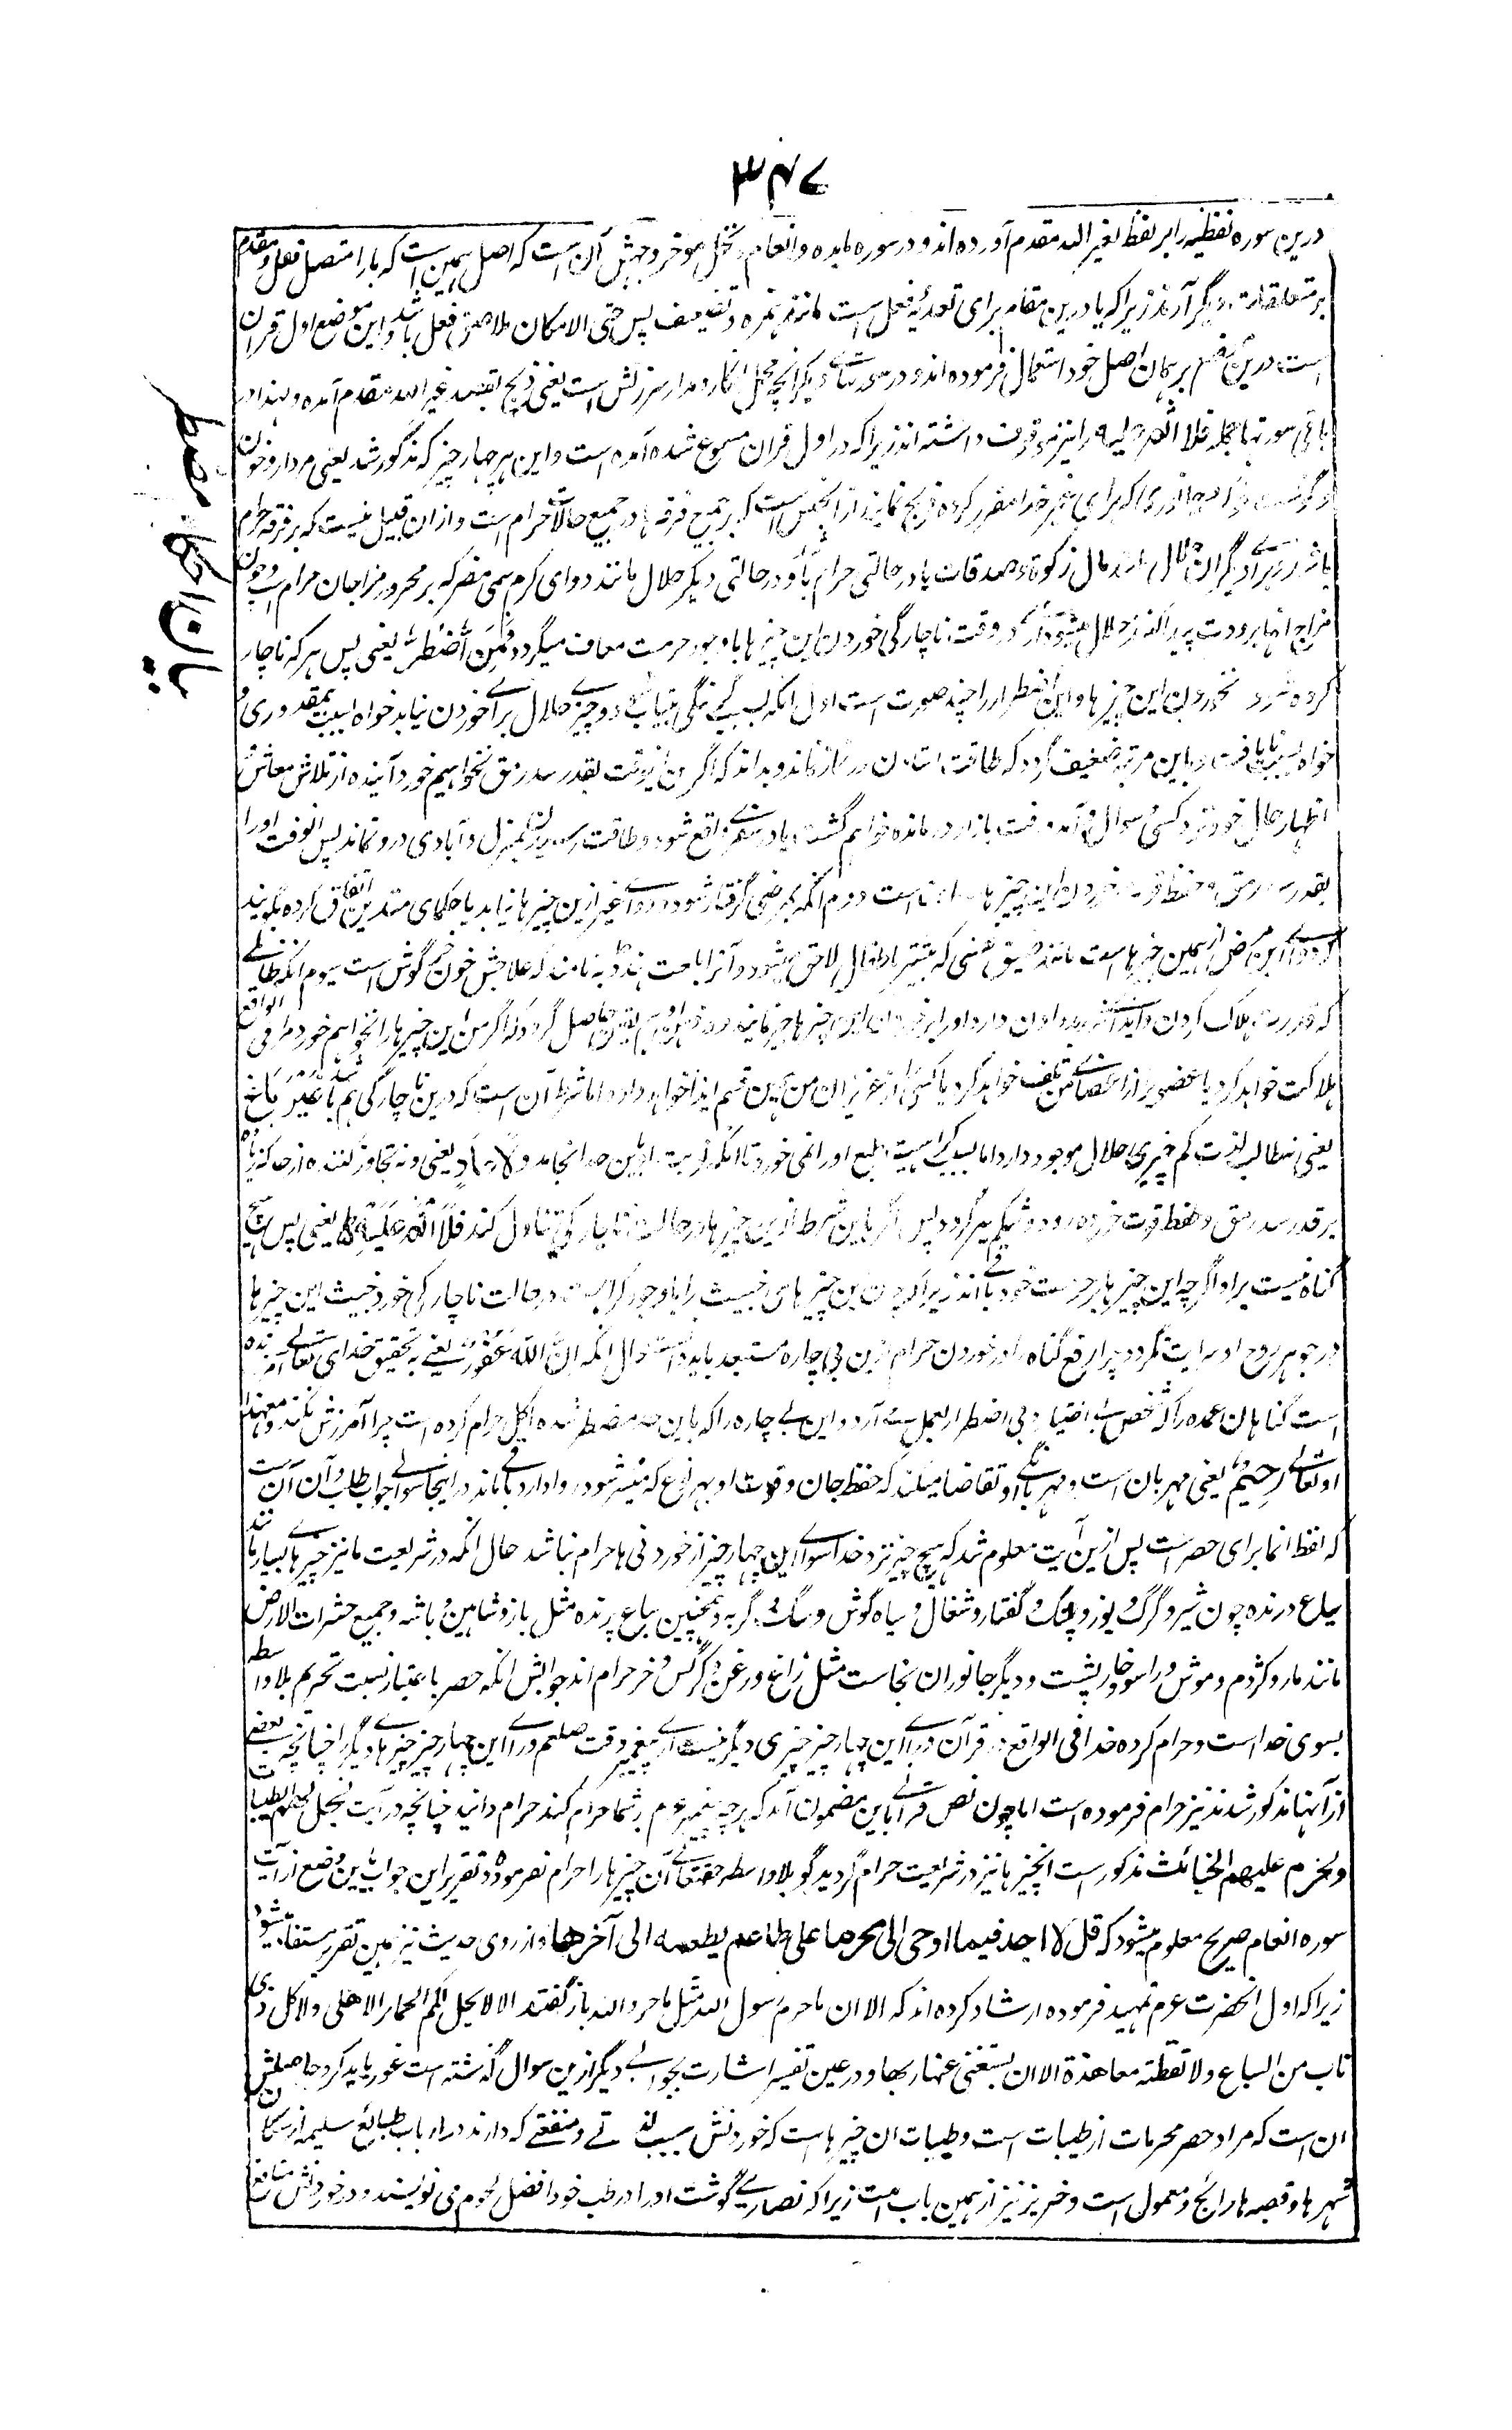 ۳۴۷
درین سوره لفظ به را بر لفظ لغیر الله مقدم آورده اند و در سوره مایده و انعام و نحل موخر وجهش آن است که اصل همین است که با را متصل فعل و مقدم
بر متعلقات دیگر آرند زیرا که با درین مقام برای تعدیه فعل است مانند همزه و تضعیف پس حتی الامکان ملاصق فعل باشد و این موضع اول قران
است درین بر همان اصل خود استعمال فرموده اند و در دیگر انچه محل انکار و مدار سرزنش است یعنی ذبح بقصد غیر الله مقدم آمده و لهذا در
باقی سورتها جمله فلا اثم علیه را نیز موقوف داشته اند زیرا که در اول قران مسموع شده آمده است و این هر چهار چیز که مذکور شد یعنی مردار و خون
و گوشت و جانوری که برای غیر خدا مقرر کرده ذبح نمایند از آنجنس است که بر جمیع فرقه ها در جمیع حالات حرام است و ازان قبیل نیست که بر فرقه حرام
باشد و برای دیگران حلال مانند مال زکوة و صدقات یا در حالتی حرام باشد و در حالتی دیگر حلال مانند دوای گرم سمی مضر که بر محرور مزاجان حرام است و چون
مزاج انها برودت پیدا کند حلال میشود آری در وقت ناچارگی خوردن این چیزها با وجود حرمت معاف میگردد فَمَنِ اضْطُرَّ یعنی پس هر که ناچار
کرده شود بخوردن این چیزها و این اضطرار را چند صورت است اول انکه بسبب گرسنگی بیتاب شود و چیزے حلال براے خوردن نیابد خواه بسبب بیمقدوری و
خواه بسبب نایافت و باین مرتبه ضعیف گردد که طاقت استادن در نماز نماند و بداند که اگر درینوقت بقدر سد رمق نخواهیم خورد آینده از تلاش معاش و
اظهار حال خود نزد کسی و سوال و آمد و رفت بازار درمانده خواهم گشت یا در سفرے واقع شود و طاقت رسیدن بمنزل و آبادی درو نماند پس انوقت او را
بقدر سد رمق و حفظ قوت خوردن این چیزها روا است دوم آنکه بمرضی گرفتار شود و دواے غیر ازین چیزها نیابد یا حکمای متدین اتفاق کرده بگویند
که دواے این مرض از همین چیزها است مانند که بیشتر اطفال را لاحق میشود و آنرا بلغت هند ڈبه نامند که علاجش خون خرگوش است سیوم انکه ظالمے
که قدرت هلاک کردن دارد او را بر خوردن این چیزها جبر نماید و یقین حاصل گردد که اگر من این چیزها را نخواهم خورد مرا فی الواقع
هلاکت خواهد کرد یا عضوی را از اعضاے من تلف خواهد کرد یا کسی را از عزیزان من همین قسم ایذا خواهد داد اما شرط آن است که درین ناچارگی هم باشد غَیْرَ بَاغٍ
یعنی نه طالب لذت که چیزے حلال موجود دارد اما بسبب کراهیت طبع او را نمی خورد تا انکه نوبت او باین حد انجامد وَلَا عَادٍ یعنی و نه تجاوز کننده از حد که زیاده
بر قدر سد رمق و حفظ قوت خورده رود و شکم سیر گردد پس اگر باین شرط ازین چیزها در حالت ناچارگی تناول کند فَلَا اِثْمَ عَلَیْهِ یعنی پس هیچ
گناه نیست بر او اگرچه این چیزها بر حرمت خود باقے اند زیرا که چون این چیزهای خبیث را باوجود کراهت در حالت ناچارگی خورد خبث این چیزها
در جوهر روح او سرایت نکرد و برا رفع گناه در خوردن حرام ازین بی چاره مستبعد باید دانست حال انکه اِنَّ اللّٰهَ غَفُوْرٌ یعنے به تحقیق خدای تعالے آمرزنده
است گناهان عمده را که شخص به اختیار و بی اضطرار بعمل مے آرد و این بے چاره را که باین حد مضطر شده اکل حرام کرده است چرا آمرزش نکند و معهذا
او تعالے رَحِیْمٌ یعنی مهربان است و مهربانگے او تقاضا میکند که حفظ جان و قوت او بهر نوع که میسر شود روادارد باقے ماند در اینجا سوالے جواب طلب و آن آن است
که لفظ انما برای حصر است پس ازین آیت معلوم شد که هیچ چیز نزد خدا سوائے این چهار چیز از خوردنی ها حرام نباشد حال انکه در شریعت ما نیز چیزهاے بسیار مانند
سباع درنده چون شیر و گرگ و یوز و پلنگ و گفتار و شغال و سیاه گوش و سگ و گربه و همچنین سباع پرنده مثل باز و شاهین و باشه و جمیع حشرات الارض
مانند مار و کژدم و موش و راسو و خارپشت و دیگر جانوران نجاست مثل زاغ و زغن و کرگس و خر حرام اند جوابش انکه حصر باعتبار نسبت تحریم بلا واسطه
بسوی خدا است و حرام کرده خدا فی الواقع در قرآن وراے این چهار چیز چیزی دیگر نیست آرے پیغمبر وقت صلعم وراے این چهار چیز چیزهاے دیگر را چنانچه بعضے
از آنها مذکور شدند نیز حرام فرموده است اما چون نص قرآنے باین مضمون آمد که هر چه پیغمبر عم بر شما حرام کند حرام دانید چنانچه در آیت یحل لهم الطیبات
ویحرم علیهم الخبائث مذکور است انچیزها نیز در شریعت حرام گردید گو بلا واسطه حقتعالے آن چیزها را حرام نفرموده و تقریر این جواب باین وضع از آیت
سوره انعام صریح معلوم میشود که قل لا اجد فیما اوحی الی محرما علی طاعم یطعمه الی آخرها و از روی حدیث نیز همین تقریر مستفاد میشود
زیرا که اول انحضرت عم تمهید فرموده ارشاد کرده اند که الا ان ما حرم رسول الله مثل ما حرم الله باز گفتند الا لا یحل لکم الحمار الاهلی ولا کل ذی
ناب من السباع ولا لقطة معاهدة الا ان یستغنی عنها ربها و در عین تفسیر اشارت بجوابے دیگر ازین سوال گذشته است غور باید کرد حاصلش
ان است که مراد حصر محرمات از طیبات است و طیبات ان چیزها است که خوردنش بسبب لذتے و منفعتے که دارند در ارباب طبائع سلیمه از سکان
شهرها و قصبه ها رائج و معمول است و خنزیر نیز از همین باب است زیرا که نصارے گوشت او را در طب خود افضل لحوم می نویسند و در خوردنش منافع
بیان احکام مضطر